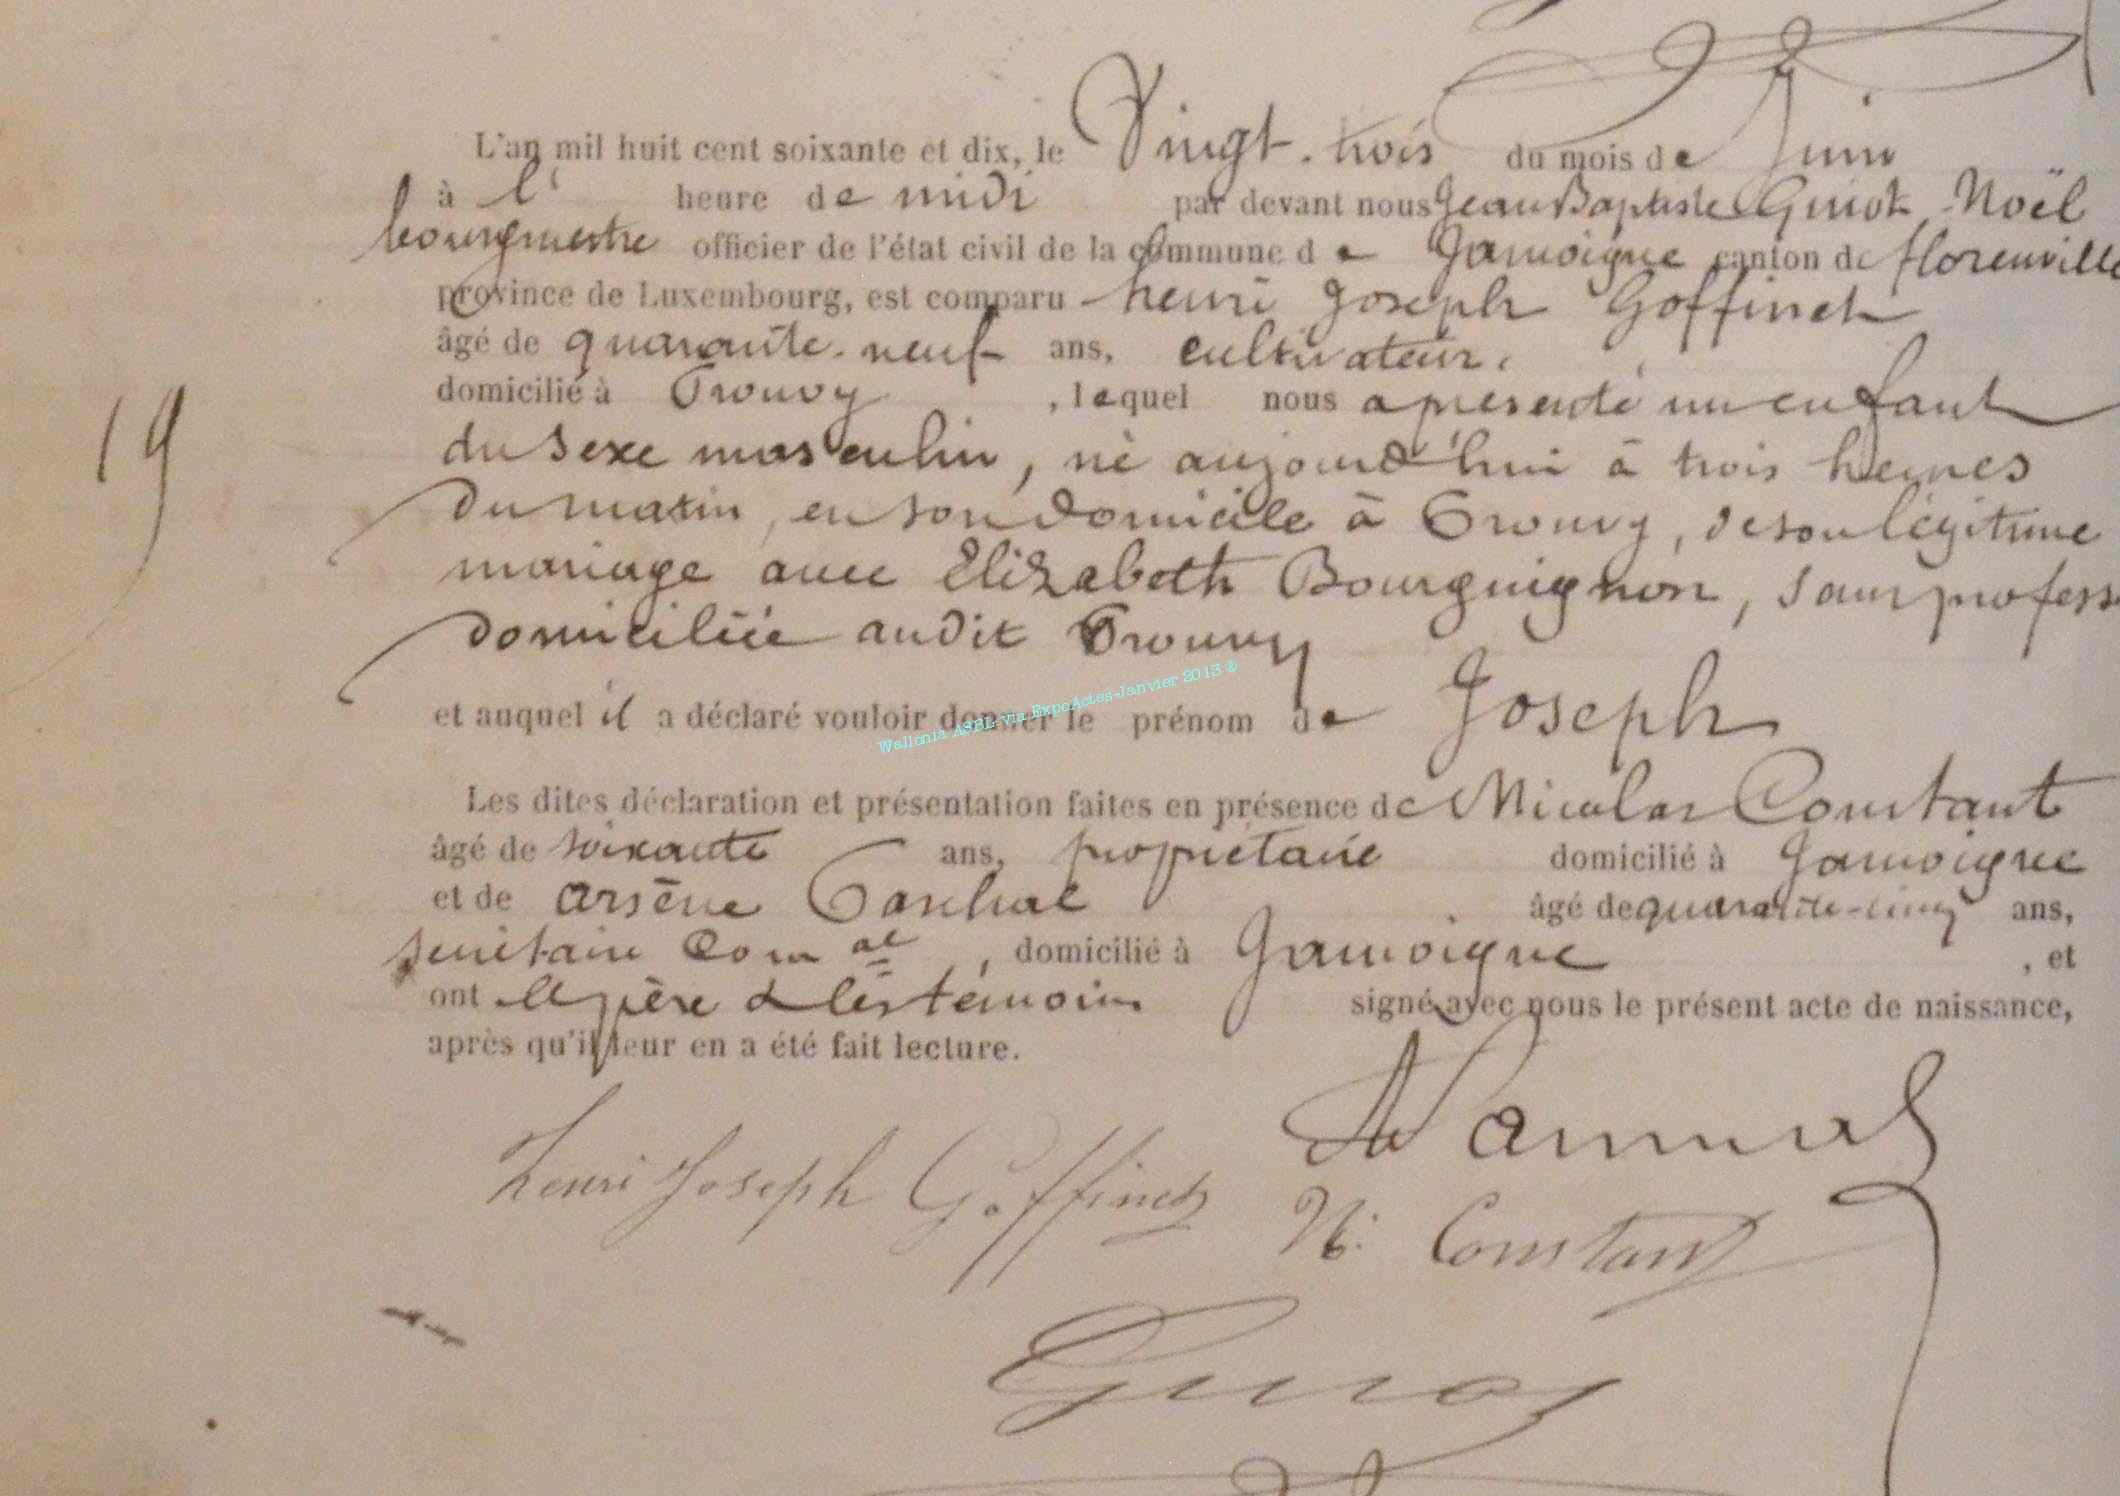 L'an mil huit cent soixante et dix, le Vingt-trois du mois de Juin
à l' heure de midi par devant nous Jean Baptiste Guiot Noël
bourgmestre officier de l'état civil de la commune de Jamoigne canton de florenville
province de Luxembourg, est comparu henri Joseph Goffinet
âgé de quarante-neuf ans, cultivateur,
domicilié à Prouvy, lequel nous a présenté un enfant
19
du sexe masculin, né aujourd'hui à trois heures
du matin, en son domicile à Prouvy, de son légitime
mariage avec Elizabeth Bourguignon, sans profess
domiciliée audit Prouvy
et auquel il a déclaré vouloir donner le prénom de Joseph
Wallonia ASBL via ExpoActes-Janvier 2013 ©
Les dites déclaration et présentation faites en présence de Nicolas Constant
âgé de soixante ans, propriétaire domicilié à Jamoigne
et de arsène âgé de quarante-cinq ans,
secrétaire Com al, domicilié à Jamoigne, et
ont le père & les témoins signé avec nous le présent acte de naissance,
après qu'il leur en a été fait lecture.
henri Joseph Goffinet
N. Constant
Guiot